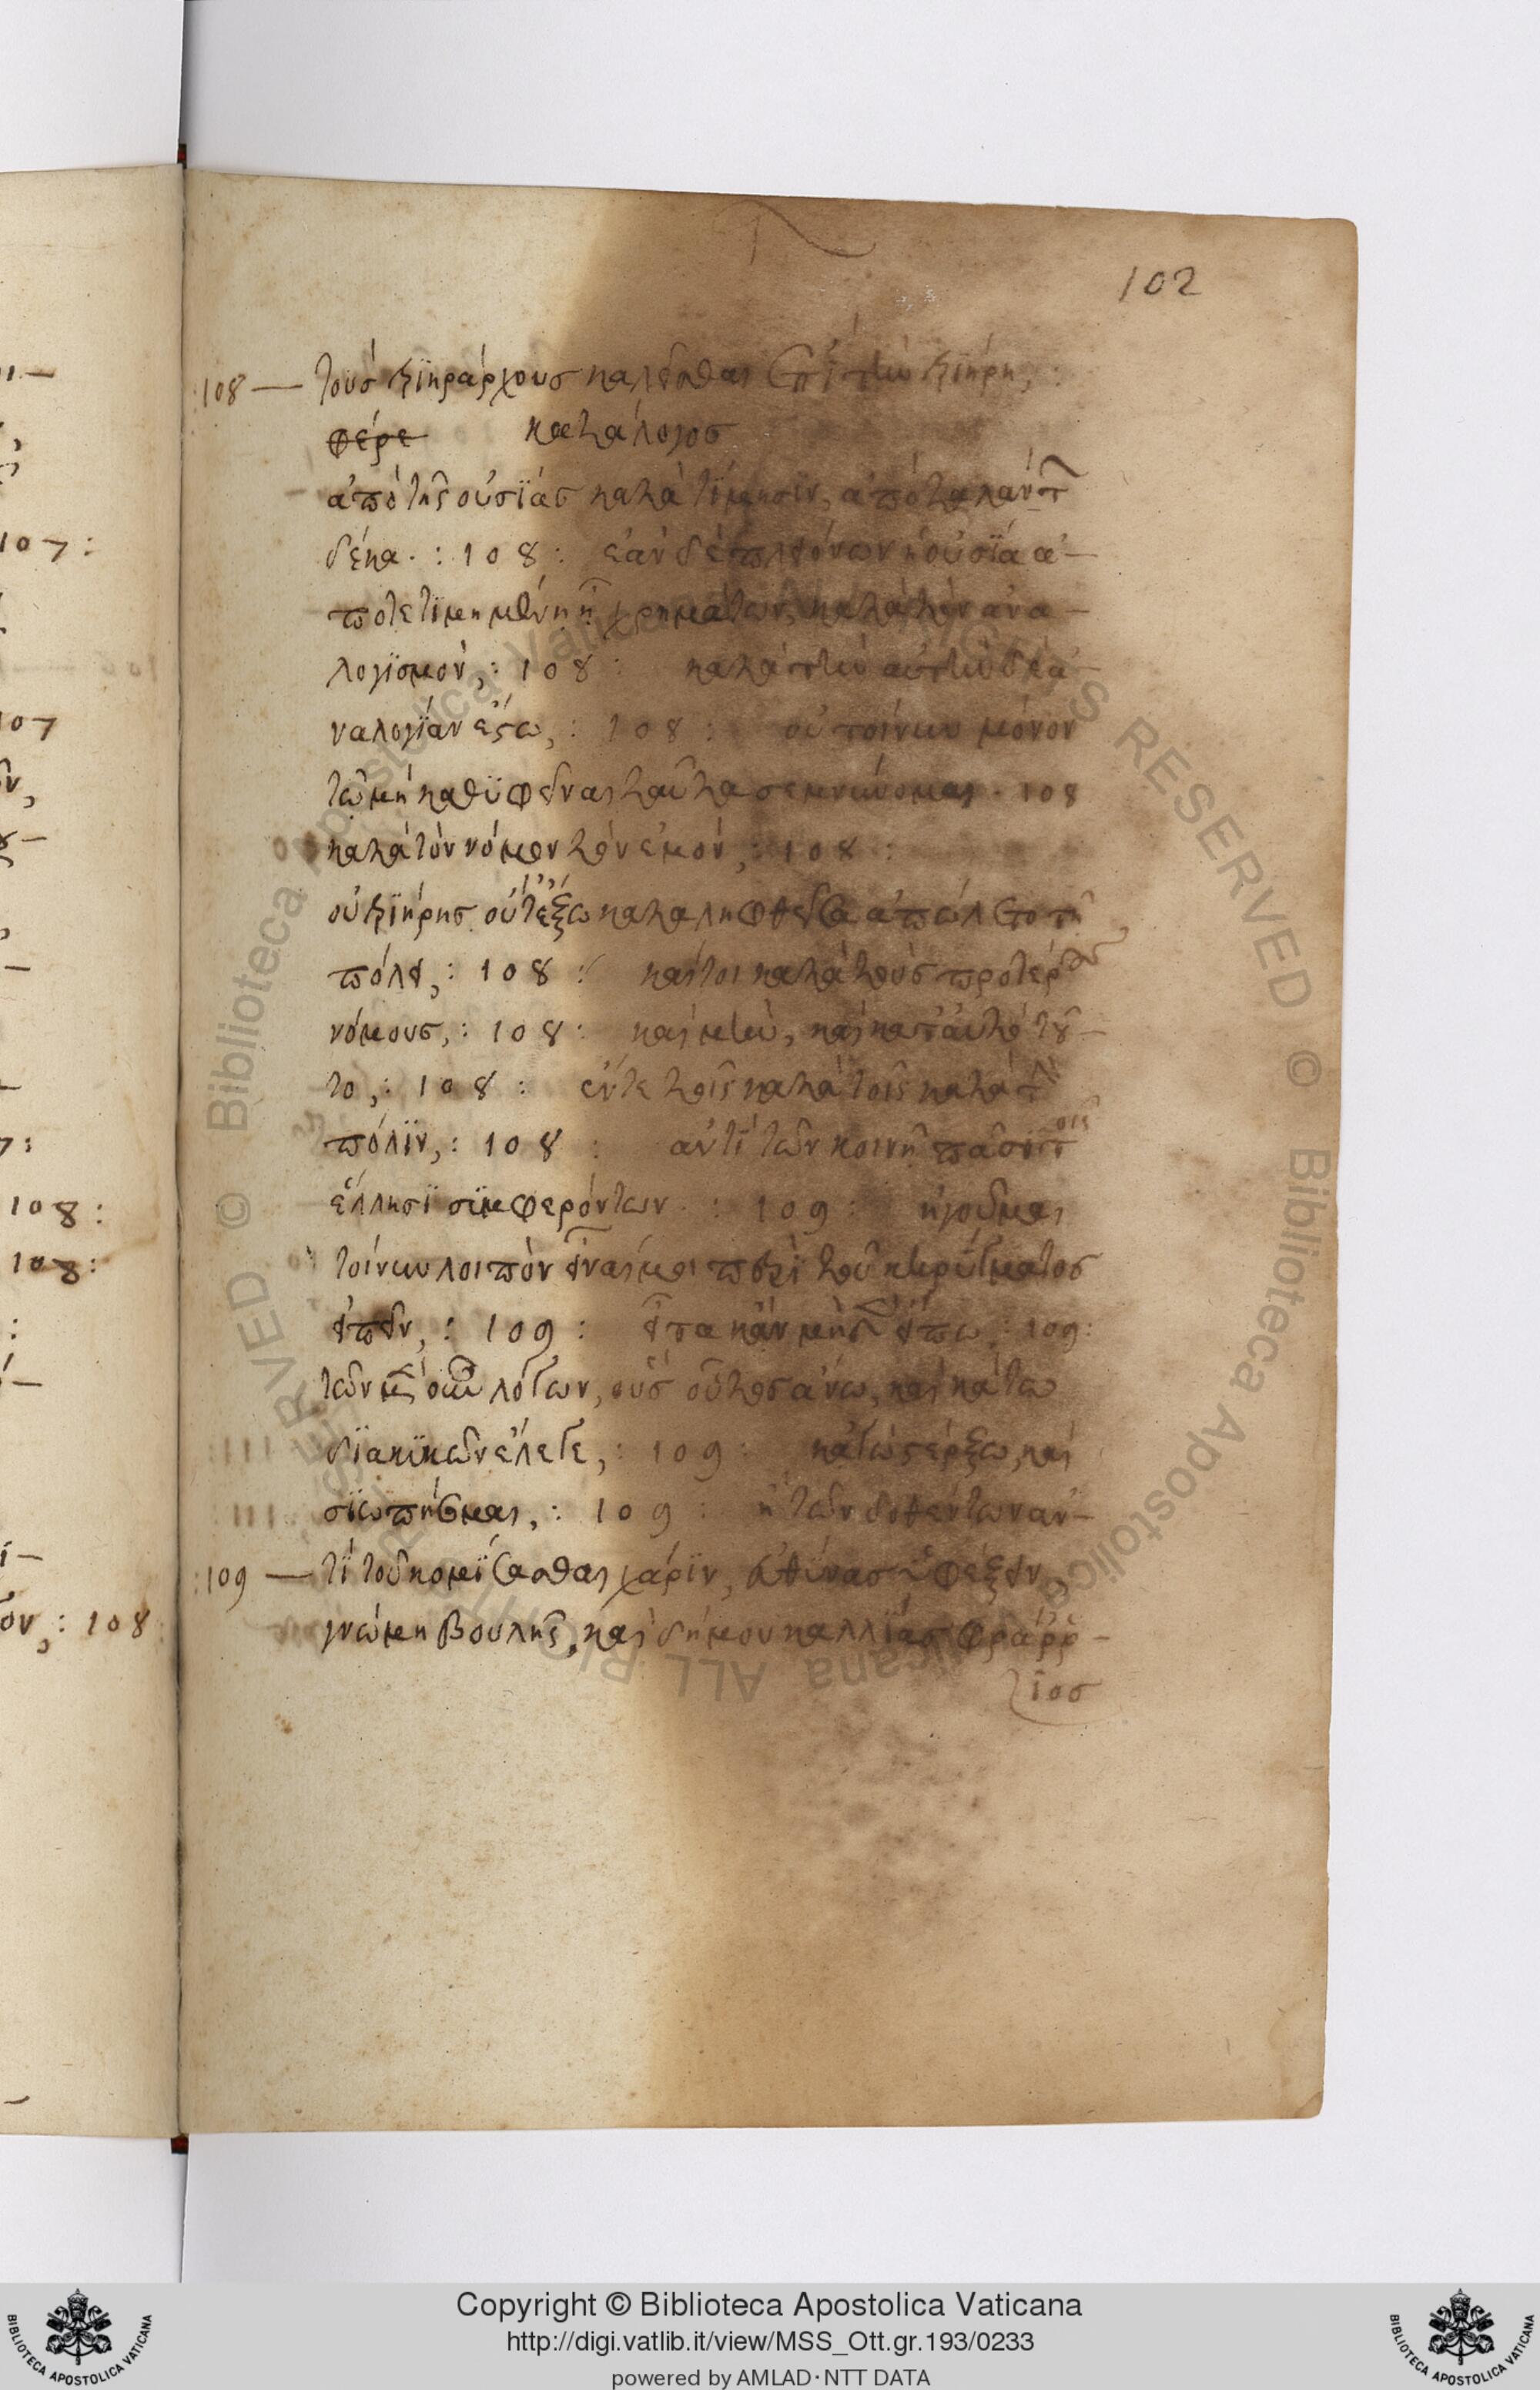 102
108 — τοὺσ τριηράρχουσ καλεῖσθαι ἐπὶ τὴν τριήρη,
φέρε κατάλογοσ
ἀπὸ τῆς οὐσίασ κατὰ τίμησιν, ἀπὸ ταλάντ
δέκα · : 108 : ἐὰν δὲ πλειόνων ἡ οὐσία ἀ —
ποτετιμημένη ἦ χρημάτων, κατὰ τὸν ἀνα —
λογισμὸν, : 108 : κατὰ τὴν αὐτὴν δὲ ἀ —
ναλογίαν ἔστω, : 108 : οὐ τοίνυν μόνον
τῶ μὴ καθυφεῖναι ταῦτα σεμνύνομαι · 108
κατὰ τὸν νόμον τὸν ἐμόν, : 108 :
οὐ τριήρησ οὔτ' ἔξω καταληφθεῖσα ἀπώλετο τῆ
πόλει, : 108 : καίτοι κατὰ τοὺσ προτέρουσ
νόμουσ, : 108 : καὶ μὴν, καὶ κατ' αὐτὸ τοῦ —
το, : 108 : ἔν τε τοῖς κατὰ τοῖς κατὰ τὴν
πόλιν, : 108 : ἀντὶ τῶν κοινῆ πᾶσι τοῖς
ἕλλησι συμφερόντων · : 109 : ἡγοῦμαι
τοίνυν λοιπὸν εἶναί μοι περὶ τοῦ κηρύγματοσ
εἰπεῖν, : 109 : εἶτα κἂν μηδὲν εἴπω : 109 :
τῶν μὲν οὖν λόγων, οὓσ οὗτοσ ἄνω, καὶ κάτω
διακυκῶν ἔλεγε, : 109 : κάτω στρέξω, καὶ
σιωπήσομαι, : 109 : ἢ τῶν δοθέντων ἀν —
109 — τὶ τοῦ κομίσασθαι χάριν,
γνώμη βουλῆς, καὶ δήμου καλλίασ φρεάρρ —
ιοσ
Copyright © Biblioteca Apostolica Vaticana
http://digi.vatlib.it/view/MSS_Ott.gr.193/0233
powered by AMLAD·NTT DATA